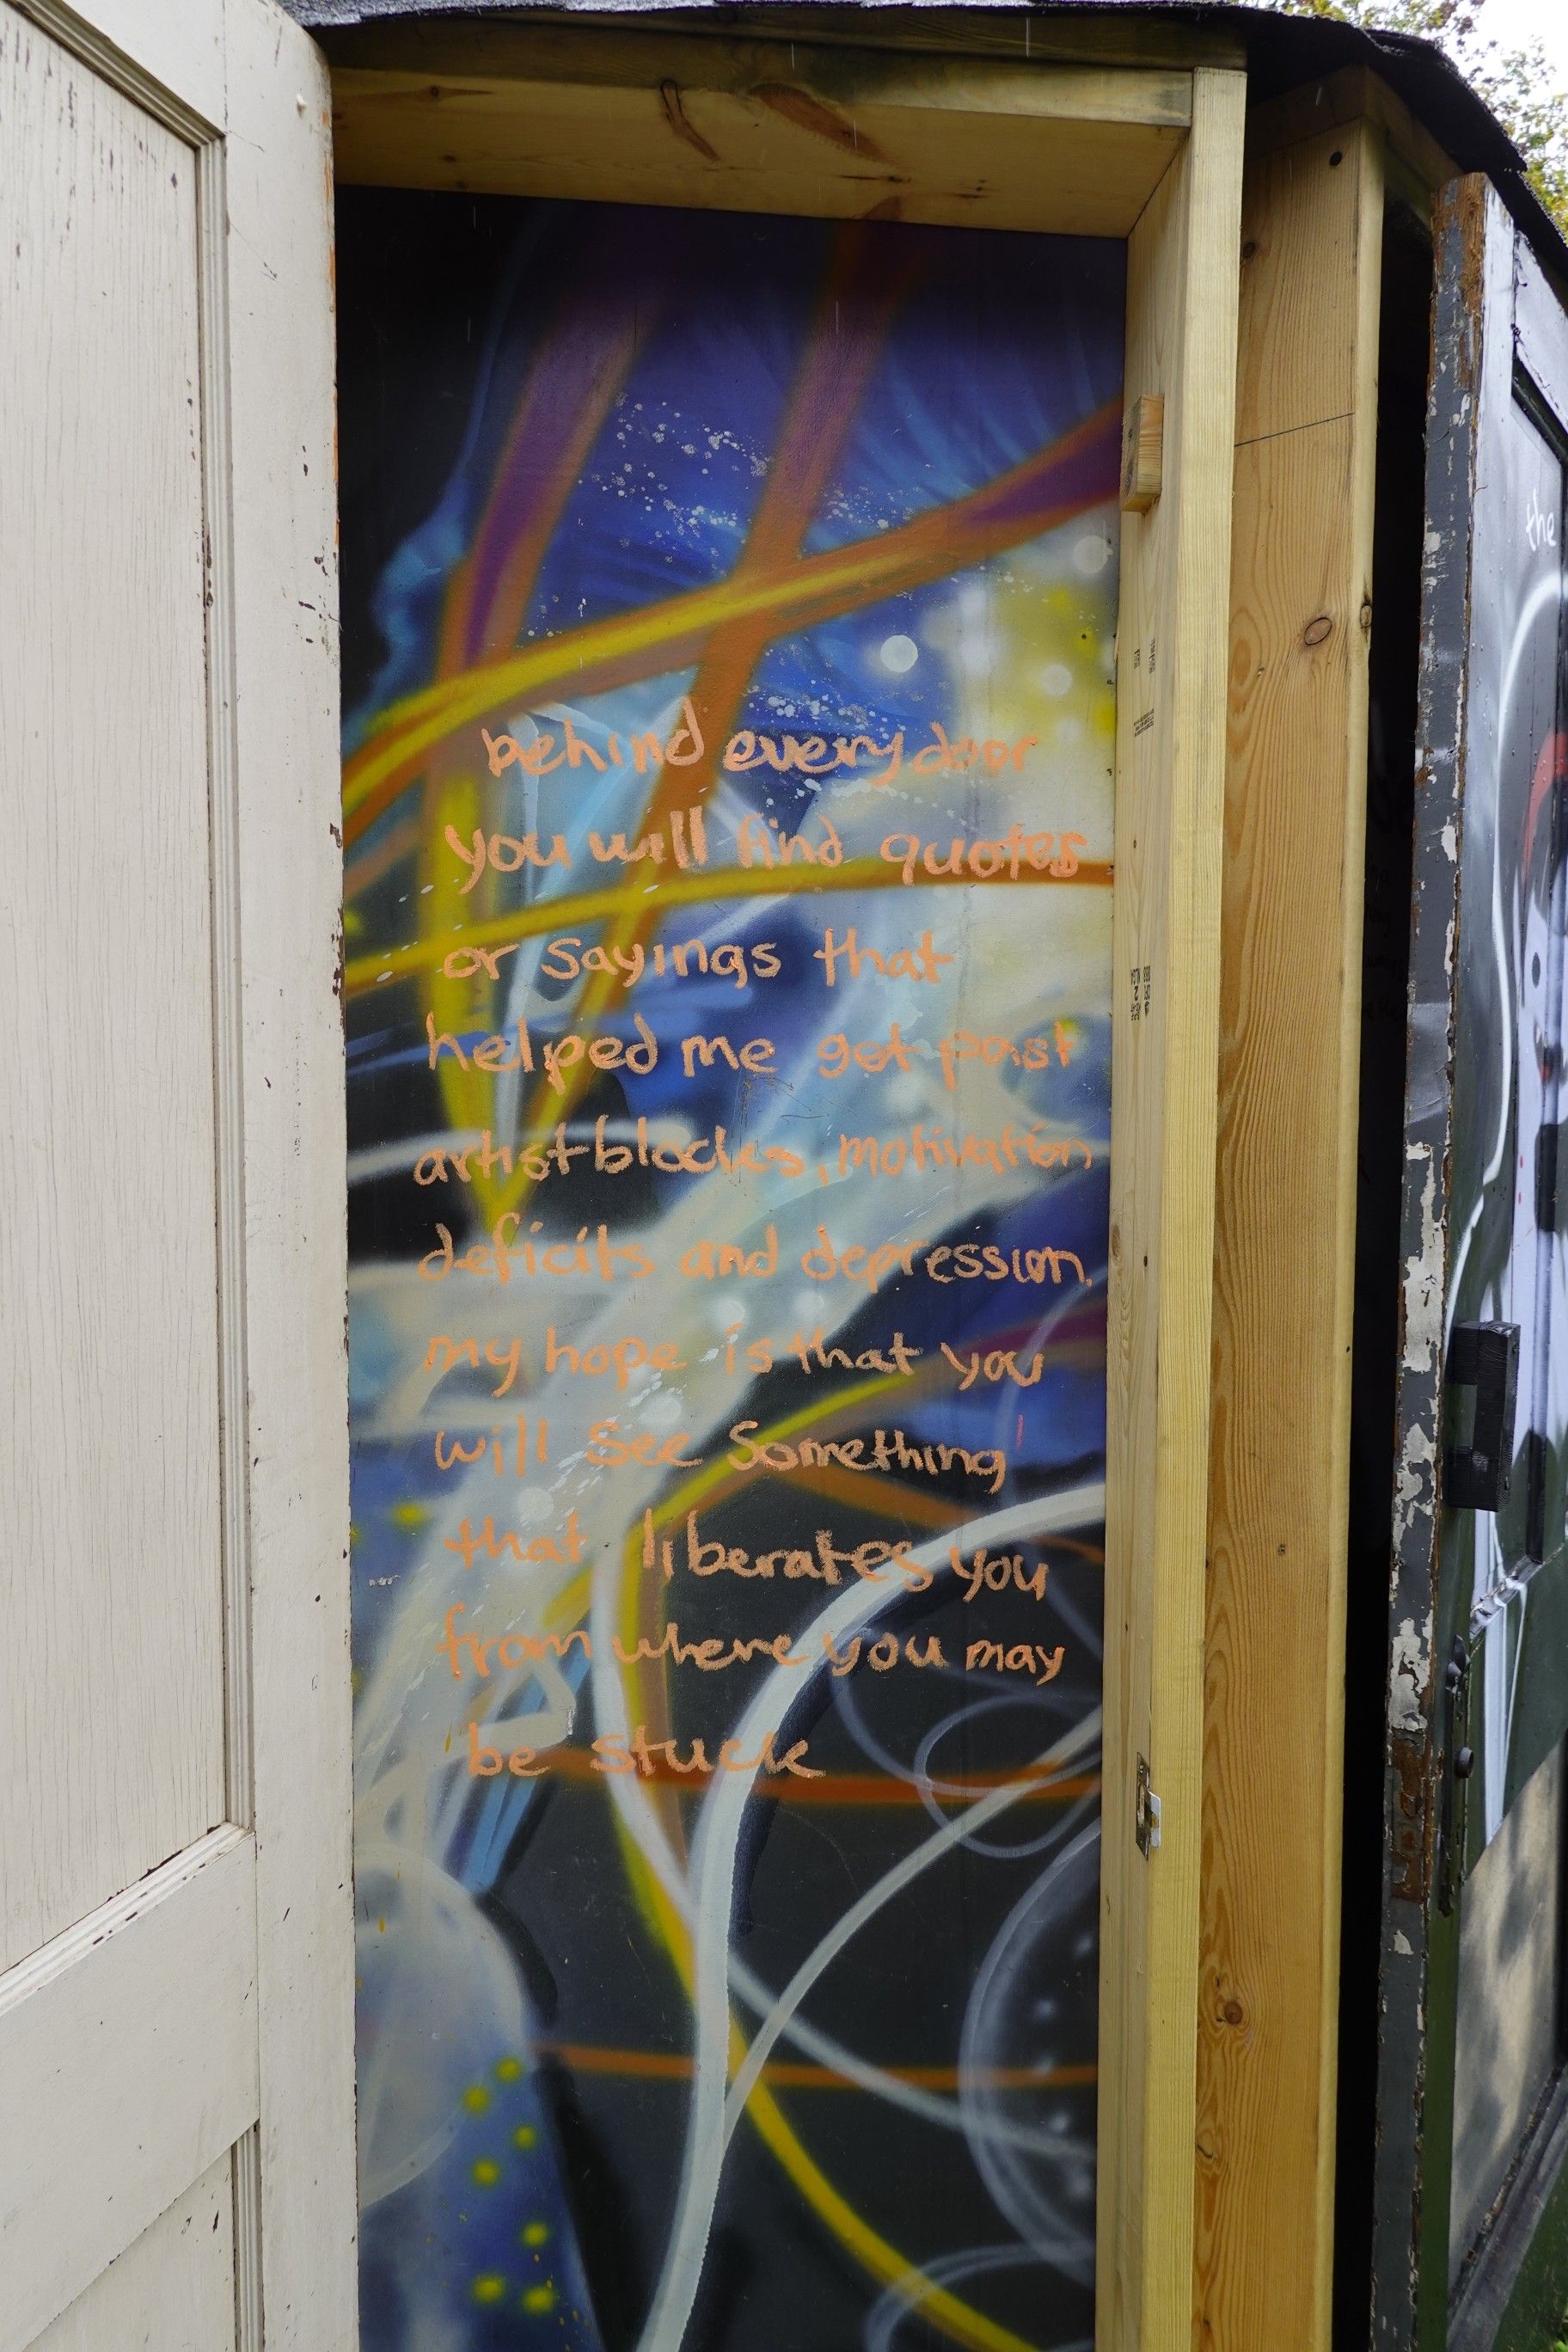 behind every door
you will find quotes
or sayings that
helped me get past
artist blocks, motivation
deficits and depression.
my hope is that you
will see something
that liberates you
from where you may
be stuck
the